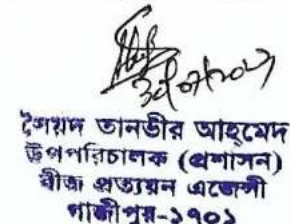 সৈয়দ তানভীর আহমেদ
উপপরিচালক (প্রশাসন)
বীজ প্রত্যয়ন এজেন্সী
গাজীপুর-১৭০১